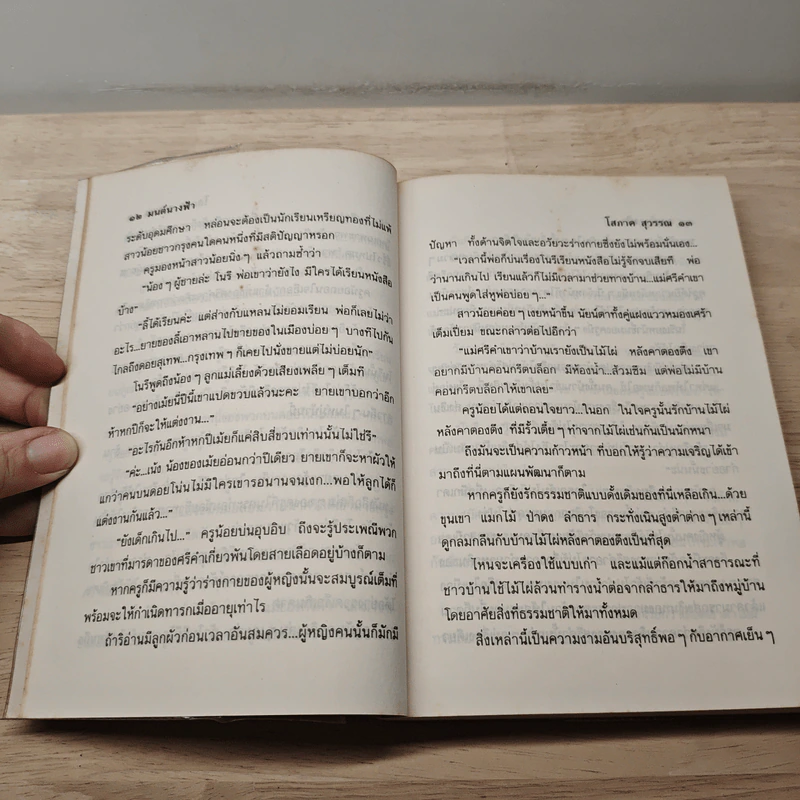 ๑๒ มนต์นางฟ้า
ระดับอุดมศึกษา หล่อนจะต้องเป็นนักเรียนเหรียญทองที่ไม่แพ้
สาวน้อยชาวกรุงคนใดคนหนึ่งที่มีสติปัญญาหรอก
ครูมองหน้าสาวน้อยนิ่ง ๆ แล้วถามซ้ำว่า
“น้อง ๆ ผู้ชายล่ะ โนรี พ่อเขาว่ายังไง มีใครได้เรียนหนังสือ
บ้าง”
“ลี้ได้เรียนค่ะ แต่ล่างกับแหลนไม่ยอมเรียน พ่อก็เลยไม่ว่า
อะไร...ยายของลี้เอาหลานไปขายของในเมืองบ่อย ๆ บางทีไปกัน
ไกลถึงดอยสุเทพ...กรุงเทพ ๆ ก็เคยไปนั่งขายแต่ไม่บ่อยนัก”
โนรีพูดถึงน้อง ๆ ลูกแม่เลี้ยงด้วยเสียงเพลีย ๆ เต็มที
“อย่างเม้ยนี่ปีนี้เขาแปดขวบแล้วนะคะ ยายเขาบอกว่าอีก
ห้าหกปีก็จะให้แต่งงาน...”
“อะไรกันอีกห้าหกปีเม้ยก็แค่สิบสี่ขวบเท่านั้นไม่ใช่รึ”
“ค่ะ...เน้ง น้องของเม้ยอ่อนกว่าปีเดียว ยายเขาก็จะหาผัวให้
แกว่าคนบนดอยโน่นไม่มีใครเขารอนานจนเงก...พอให้ลูกได้ก็
แต่งงานกันแล้ว...”
“ยังเด็กเกินไป...” ครูน้อยบ่นอุบอิบ ถึงจะรู้ประเพณีพวก
ชาวเขาที่มารดาของศรีคำเกี่ยวพันโดยสายเลือดอยู่บ้างก็ตาม
หากครูก็มีความรู้ว่าร่างกายของผู้หญิงนั้นจะสมบูรณ์เต็มที่
พร้อมจะให้กำเนิดทารกเมื่ออายุเท่าไร
ถ้าริอ่านมีลูกผัวก่อนเวลาอันสมควร...ผู้หญิงคนนั้นก็มักมี
โสภาค สุวรรณ ๑๓
ปัญหา ทั้งด้านจิตใจและอวัยวะร่างกายซึ่งยังไม่พร้อมนั่นเอง...
“เวลานี้พ่อก็บ่นเรื่องในวีเรียนหนังสือไม่รู้จักจบเสียที พ่อ
ว่านานเกินไป เรียนแล้วก็ไม่มีเวลามาช่วยทางบ้าน...แม่ศรีคำเขา
เป็นคนพูดใส่หูพ่อบ่อย ๆ...”
สาวน้อยค่อย ๆ เงยหน้าขึ้น นัยน์ตาทั้งคู่แฝงแววหมองเศร้า
เต็มเปี่ยม ขณะกล่าวต่อไปอีกว่า
“แม่ศรีคำเขาว่าบ้านเรายังเป็นไม้ไผ่ หลังคาตองตึง เขา
อยากมีบ้านคอนกรีตบล็อก มีห้องน้ำ...ส้วมซึม แต่พ่อไม่มีบ้าน
คอนกรีตบล็อกให้เขาเลย”
ครูน้อยได้แต่ถอนใจยาว...ในอก ในใจครูนั้นรักบ้านไม้ไผ่
หลังคาตองตึง ที่มีรั้วเตี้ย ๆ ทำจากไม้ไผ่เช่นกันเป็นนักหนา
ถึงมันจะเป็นความก้าวหน้า ที่บอกให้รู้ว่าความเจริญได้เข้า
มาถึงที่นี่ตามแผนพัฒนาก็ตาม
หากครูก็ยังรักธรรมชาติแบบดั้งเดิมของที่นี่เหลือเกิน...ด้วย
ขุนเขา แมกไม้ ป่าดง ลำธาร กระทั่งเนินสูงต่ำต่าง ๆ เหล่านี้
ดูกลมกลืนกับบ้านไม้ไผ่หลังคาตองตึงเป็นที่สุด
ไหนจะเครื่องใช้แบบเก่า และแม้แต่ก๊อกน้ำสาธารณะที่
ชาวบ้านใช้ไม้ไผ่ล้วนทำรางน้ำต่อจากลำธารให้มาถึงหมู่บ้าน
โดยอาศัยสิ่งที่ธรรมชาติให้มาทั้งหมด
สิ่งเหล่านี้เป็นความงามอันบริสุทธิ์พอ ๆ กับอากาศเย็น ๆ